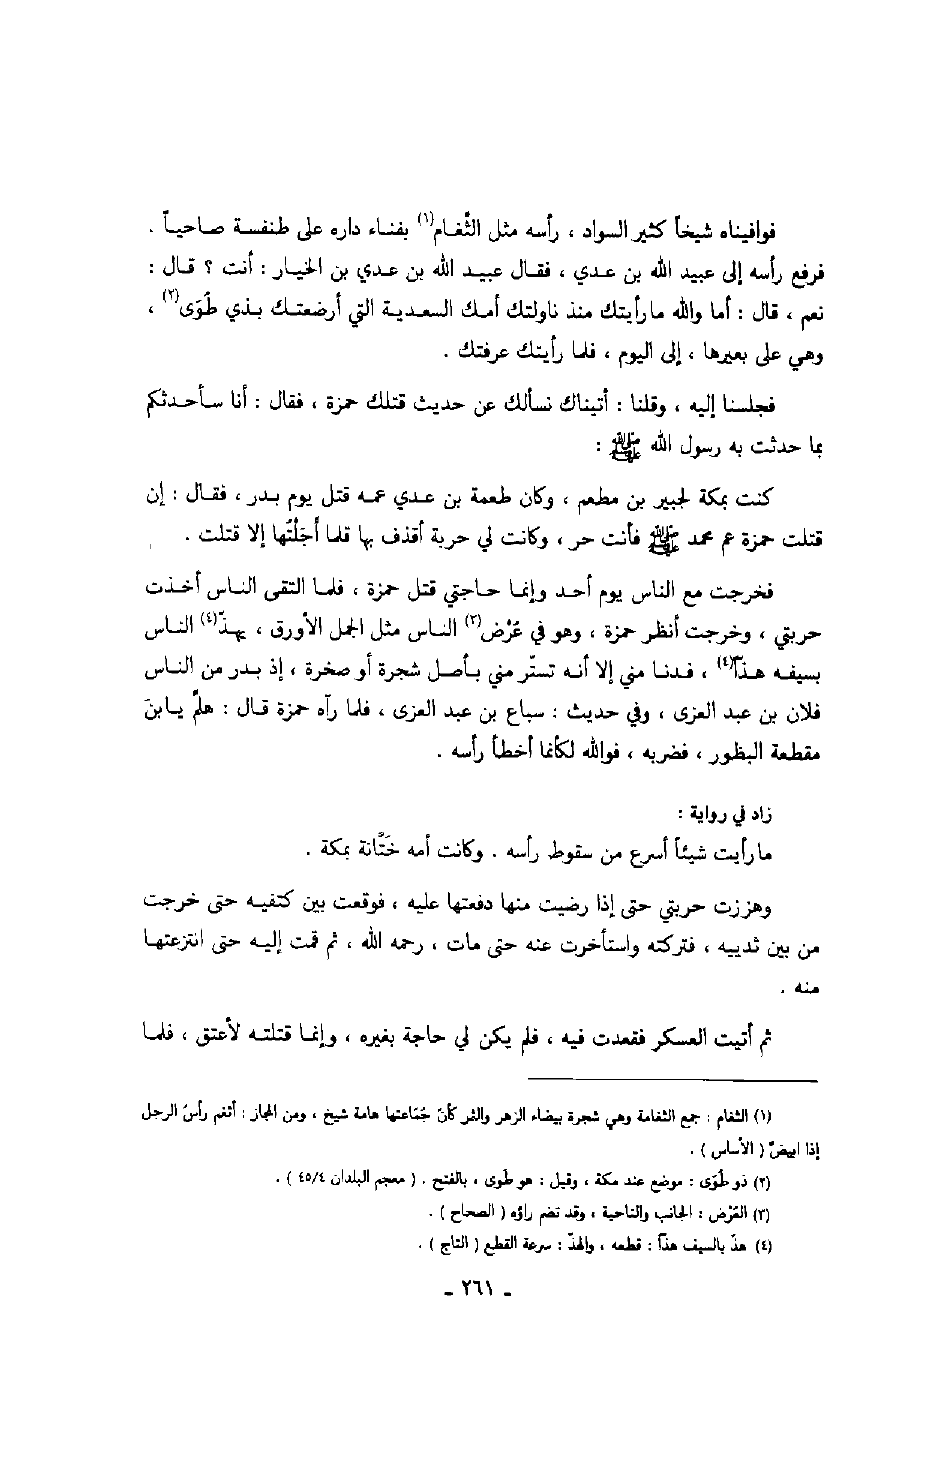 فوافيناه شيخاً كثير السواد ، رأسه مثل الثُّغام(١) بفناء داره على طنفسة صاحياً .
فرفع رأسه إلى عبيد الله بن عدي ، فقال عبيد الله بن عدي بن الخيار : أنت ؟ قال :
نعم ، قال : أما والله ما رأيتك منذ ناولتك أمك السعدية التي أرضعتك بذي طُوَى(٢) ،
وهي على بعيرها ، إلى اليوم ، فلما رأيتك عرفتك .
فجلسنا إليه ، وقلنا : أتيناك نسألك عن حديث قتلك حمزة ، فقال : أنا سأحدثكم
بما حدثت به رسول الله ﷺ :
كنت بمكة لجبير بن مطعم ، وكان طعمة بن عدي عمه قتل يوم بدر ، فقال : إن
قتلت حمزة عم محمد ﷺ فأنت حر ، وكانت لي حربة أقذف بها قلما أُجَلْتُها إلا قتلت .
فخرجت مع الناس يوم أحد وإنما حاجتي قتل حمزة ، فلما التقى الناس أخذت
حربتي ، وخرجت أنظر حمزة ، وهو في عُرْض(٣) الناس مثل الجمل الأورق ، يهذّ(٤) الناس
بسيفه هذّاً(٤) ، فدنا مني إلا أنه تستّر مني بأصل شجرة أو صخرة ، إذ بدر من الناس
فلان بن عبد العزى ، وفي حديث : سباع بن عبد العزى ، فلما رآه حمزة قال : هلمَّ يا بنَ
مقطعة البظور ، فضربه ، فوالله لكأنما أخطأ رأسه .
زاد في رواية :
ما رأيت شيئاً أسرع من سقوط رأسه . وكانت أمه خَتَّانة بمكة .
وهززت حربتي حتى إذا رضيت منها دفعتها عليه ، فوقعت بين كتفيه حتى خرجت
من بين ثدييه ، فتركته واستأخرت عنه حتى مات ، رحمه الله ، ثم قمت إليه حتى انتزعتها
منه .
ثم أتيت العسكر فقعدت فيه ، فلم يكن لي حاجة بغيره ، وإنما قتلته لأعتق ، فلما
(١) الثغام : جمع الثغامة وهي شجرة بيضاء الزهر والثمر كأنّ جُمّاعتها هامة شيخ ، ومن المجاز : أثغم رأسُ الرجل
إذا ابيضّ ( الأساس ) .
(٢) ذو طُوَى : موضع عند مكة ، وقيل : هو طَوى ، بالفتح . ( معجم البلدان ٤٥/٤ ) .
(٣) العُرْض : الجانب والناحية ، وقد تضم راؤه ( الصحاح ) .
(٤) هذّ بالسيف هذّاً : قطعه ، والهذّ : سرعة القطع ( التاج ) .
- ٢٦١ -